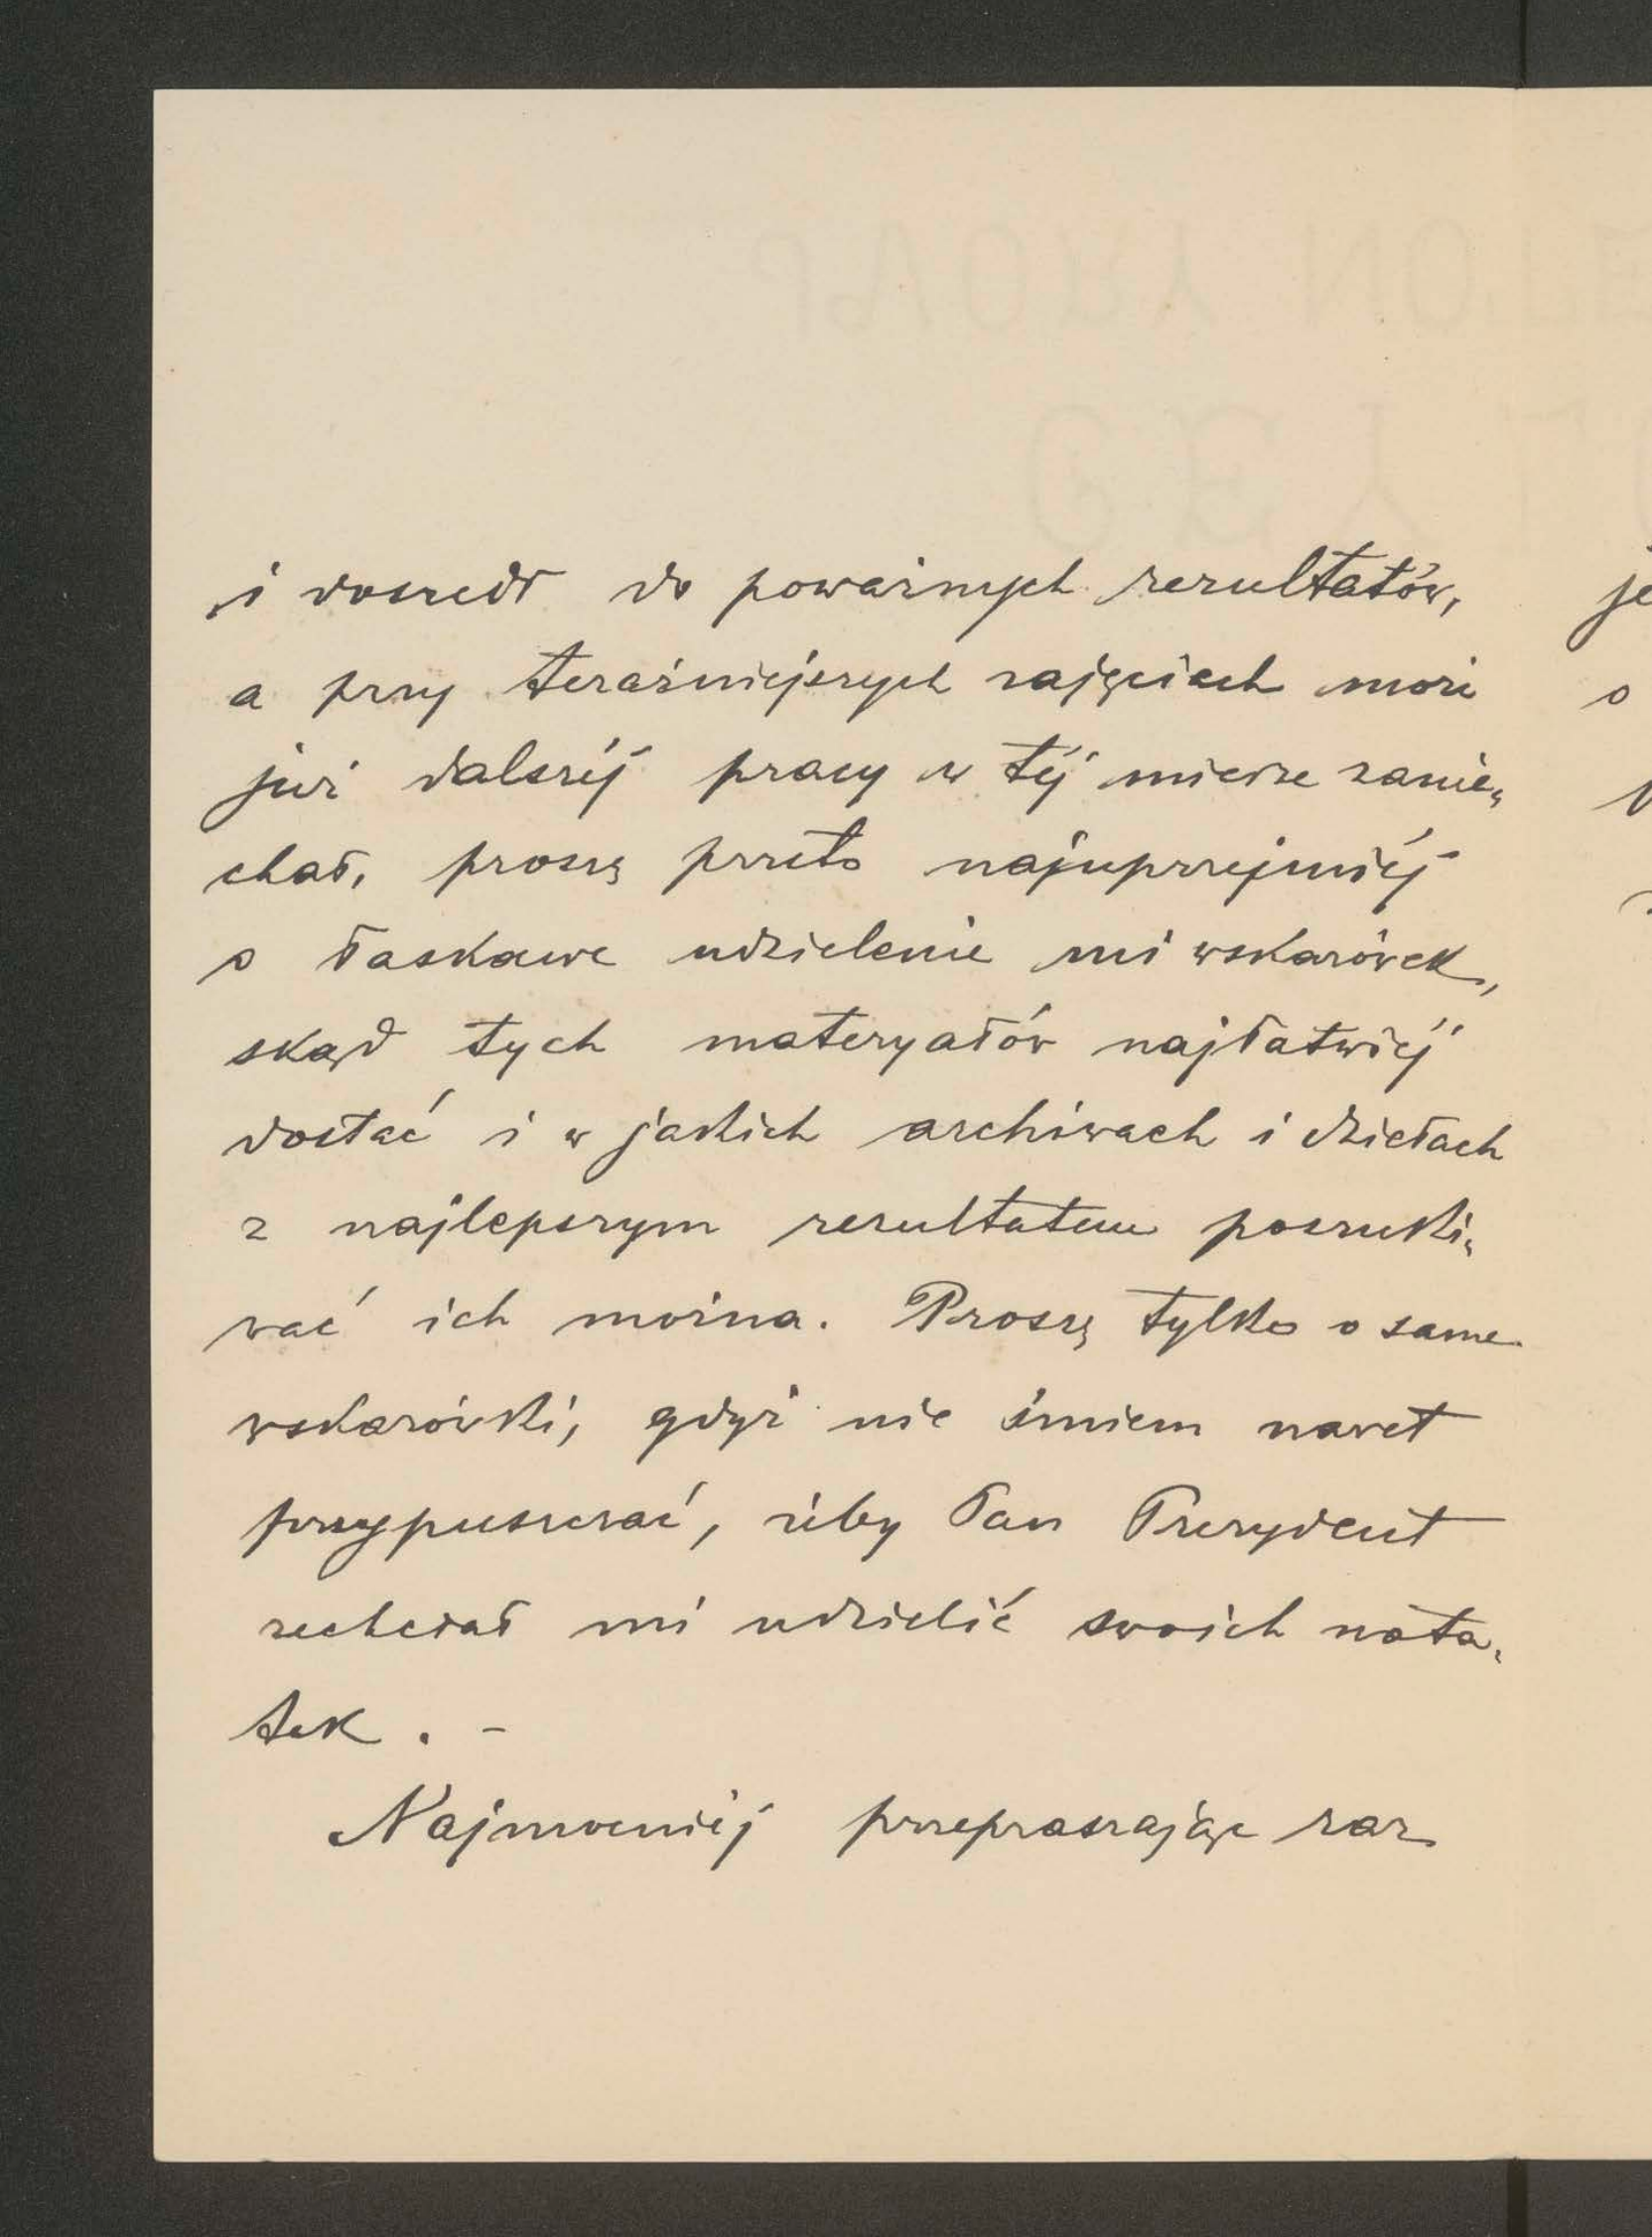 i doszedł do poważnych rezultatów,
a przy teraźniejszych zajęciach może
już dalszéj pracy w téj mierze zanie„
chał, proszę przeto najuprzejmiéj
o łaskawe udzielenie mi wskazówek,
skąd tych materyałów najłatwiéj
dostać i w jakich archiwach i dziełach
z najlepszym rezultatem poszuki„
wać ich można. Proszę tylko o same
wskazówki, gdyż nie śmiem nawet
przypuszczać, żeby Pan Prezydent
zechciał mi udzielić swoich nota„
tek. -
Najmocniéj przepraszając raz
je
o